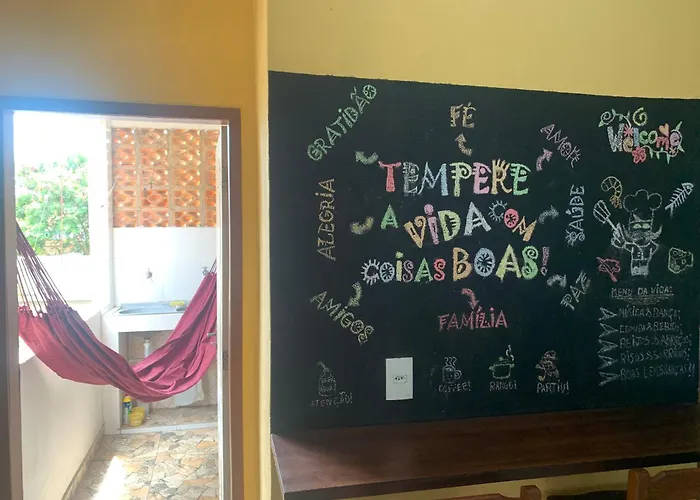 GRATIDÃO
FÉ
AMOR
Welcome
TEMPERE
A VIDA COM
COISAS BOAS!
ALEGRIA
SAÚDE
PAZ
AMIGOS
FAMÍLIA
MENU DA VIDA:
MÚSICA & DANÇA;
COMIDA & BEBIDA;
BEIJOS & ABRAÇOS;
RISOS & SORRISOS;
BOAS LEMBRANÇAS!!!
ATENÇÃO!
COFFEE!
RANGO!
PARTIU!